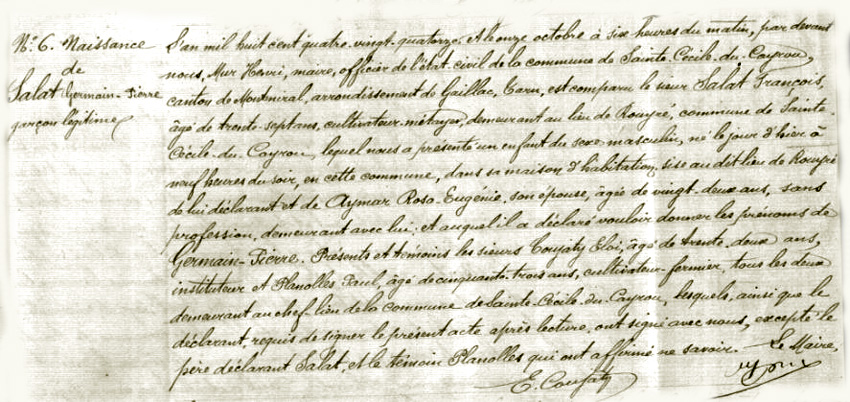 N.º 6. Naissance
de
Salat Germain-Pierre
garçon légitime
L'an mil huit cent quatre-vingt-quatorze. Et le onze octobre à six heures du matin, par devant
nous, Mur Henri, maire, officier de l'état civil de la commune de Sainte-Cécile-du-Cayrou,
canton de Montmiral, arrondissement de Gaillac, Tarn, est comparu le sieur Salat François,
âgé de trente-sept ans, cultivateur-métayer, demeurant au lieu de Rouyré, commune de Sainte-
Cécile-du-Cayrou, lequel nous a présenté un enfant du sexe masculin, né le jour d'hier à
neuf heures du soir, en cette commune, dans sa maison d'habitation, sise au dit lieu de Rouyré
de lui déclarant et de Aymar Rosa-Eugénie, son épouse, âgée de vingt-deux ans, sans
profession, demeurant avec lui; et auquel il a déclaré vouloir donner les prénoms de
Germain-Pierre. Présents et témoins les sieurs Coujaty Eloi, âgé de trente-deux ans,
instituteur et Planolles Paul, âgé de cinquante-trois ans, cultivateur-fermier, tous les deux
demeurant au chef-lieu de la commune de Sainte-Cécile-du-Cayrou, lesquels, ainsi que le
déclarant, requis de signer le présent acte après lecture, ont signé avec nous, excepté le
père déclarant Salat, et le témoin Planolles qui ont affirmé ne savoir. — Le Maire,
E. Coujaty